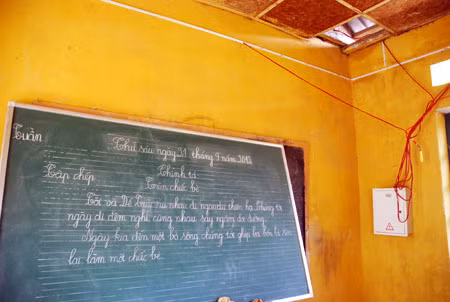 Tuần
Thứ sáu ngày 21 tháng 9 năm 2012
Tập chép Chính tả
Trên chiếc bè
Tôi và Dế Trũi rủ nhau đi ngao du thiên hạ. Chúng tôi
ngày đi đêm nghỉ cùng nhau say ngắm dọc đường.
Ngày kia đến một bờ sông chúng tôi ghép ba bốn lá sen
lại làm một chiếc bè